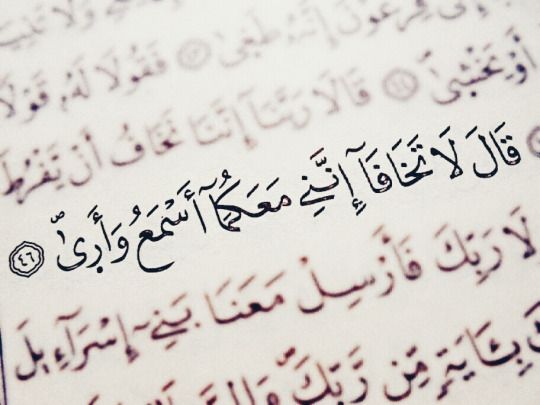 إِنَّهُۥ طَغَىٰ ٤٣ فَقُولَا لَهُۥ قَوْلًا
أَوْ يَخْشَىٰ ٤٤ قَالَا رَبَّنَآ إِنَّنَا نَخَافُ أَن يَفْرُطَ
قَالَ لَا تَخَافَآ إِنَّنِي مَعَكُمَآ أَسْمَعُ وَأَرَىٰ ٤٦
لَا رَبِّكَ فَأَرْسِلْ مَعَنَا بَنِيٓ إِسْرَٰٓءِيلَ
بِـَٔايَةٍ مِّن رَّبِّكَ